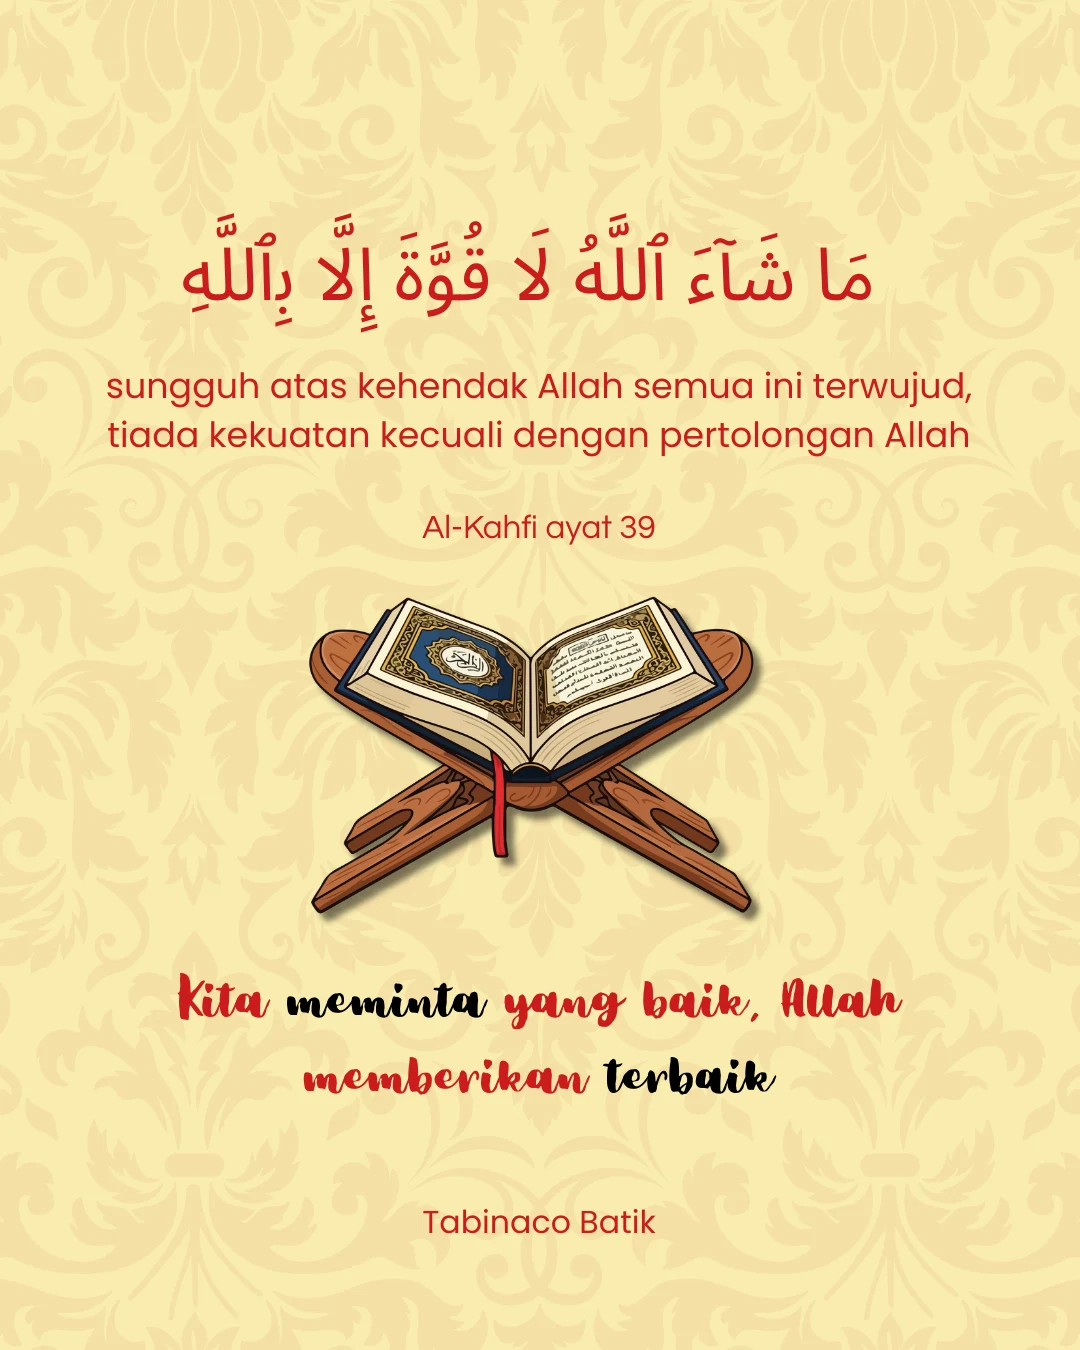 مَا شَآءَ ٱللَّهُ لَا قُوَّةَ إِلَّا بِٱللَّهِ
sungguh atas kehendak Allah semua ini terwujud,
tiada kekuatan kecuali dengan pertolongan Allah
Al-Kahfi ayat 39
Kita meminta yang baik, Allah
memberikan terbaik
Tabinaco Batik